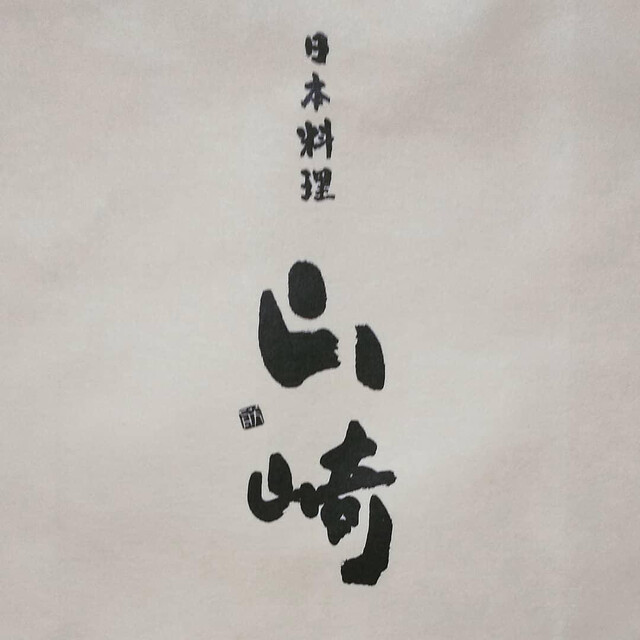 日本料理
山崎